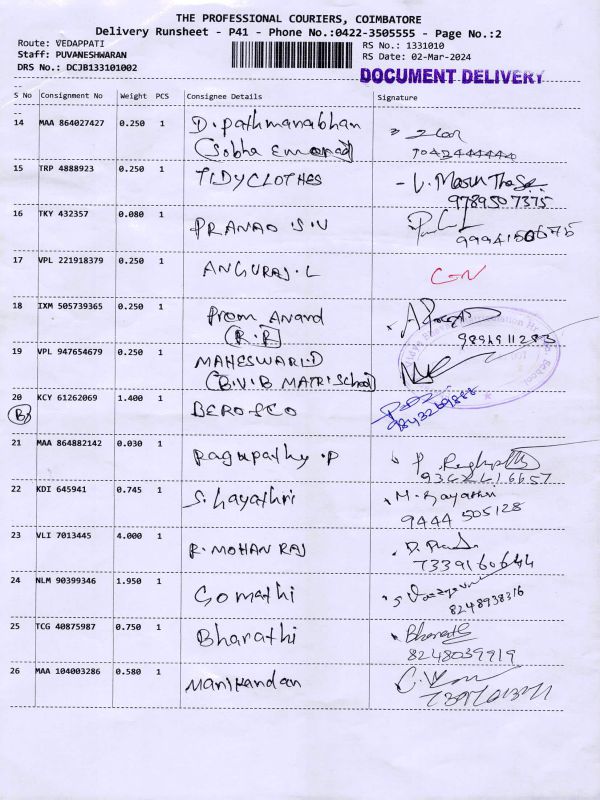 THE PROFESSIONAL COURIERS, COIMBATORE
Delivery Runsheet - P41 - Phone No.:0422-3505555 - Page No.:2
Route: VEDAPPATI
RS No.: 1331010
Staff: PUVANESHWARAN
RS Date: 02-Mar-2024
DRS No.: DCJB133101002
DOCUMENT DELIVERY
S No Consignment No Weight PCS Consignee Details Signature
14 MAA 864027427 0.250 1 D. pathmanabhan
(Sobha Emerald)
15 TRP 4888923 0.250 1 TIDYCLOTHES
9789507375
16 TKY 432357 0.080 1 PRANAO S.V
17 VPL 221918379 0.250 1 ANGURAJ.L
18 IXM 505739365 0.250 1 Prem Anand
(R.R)
9894911283
19 VPL 947654679 0.250 1 MAHESWARI.D
(B.V.B MATRI School)
20 KCY 61262069 1.400 1 BEROFCO
21 MAA 864882142 0.030 1 Ragupathy.P
22 KDI 645941 0.745 1 S. Gayathri
M. Gayathri
9444 505128
23 VLI 7013445 4.000 1 R. MOHAN RAJ
24 NLM 90399346 1.950 1 Gomathi
8248938316
25 TCG 40875987 0.750 1 Bharathi
8248039919
26 MAA 104003286 0.580 1 Manikandan